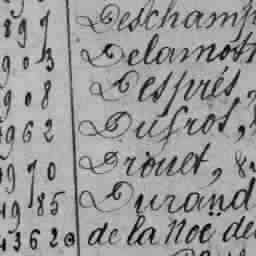 897 Deschamp
903 Delamott
908 Després,
4962 Dufrot,
4970 Drouet, &
4985 Durand
43620 de la Noë de